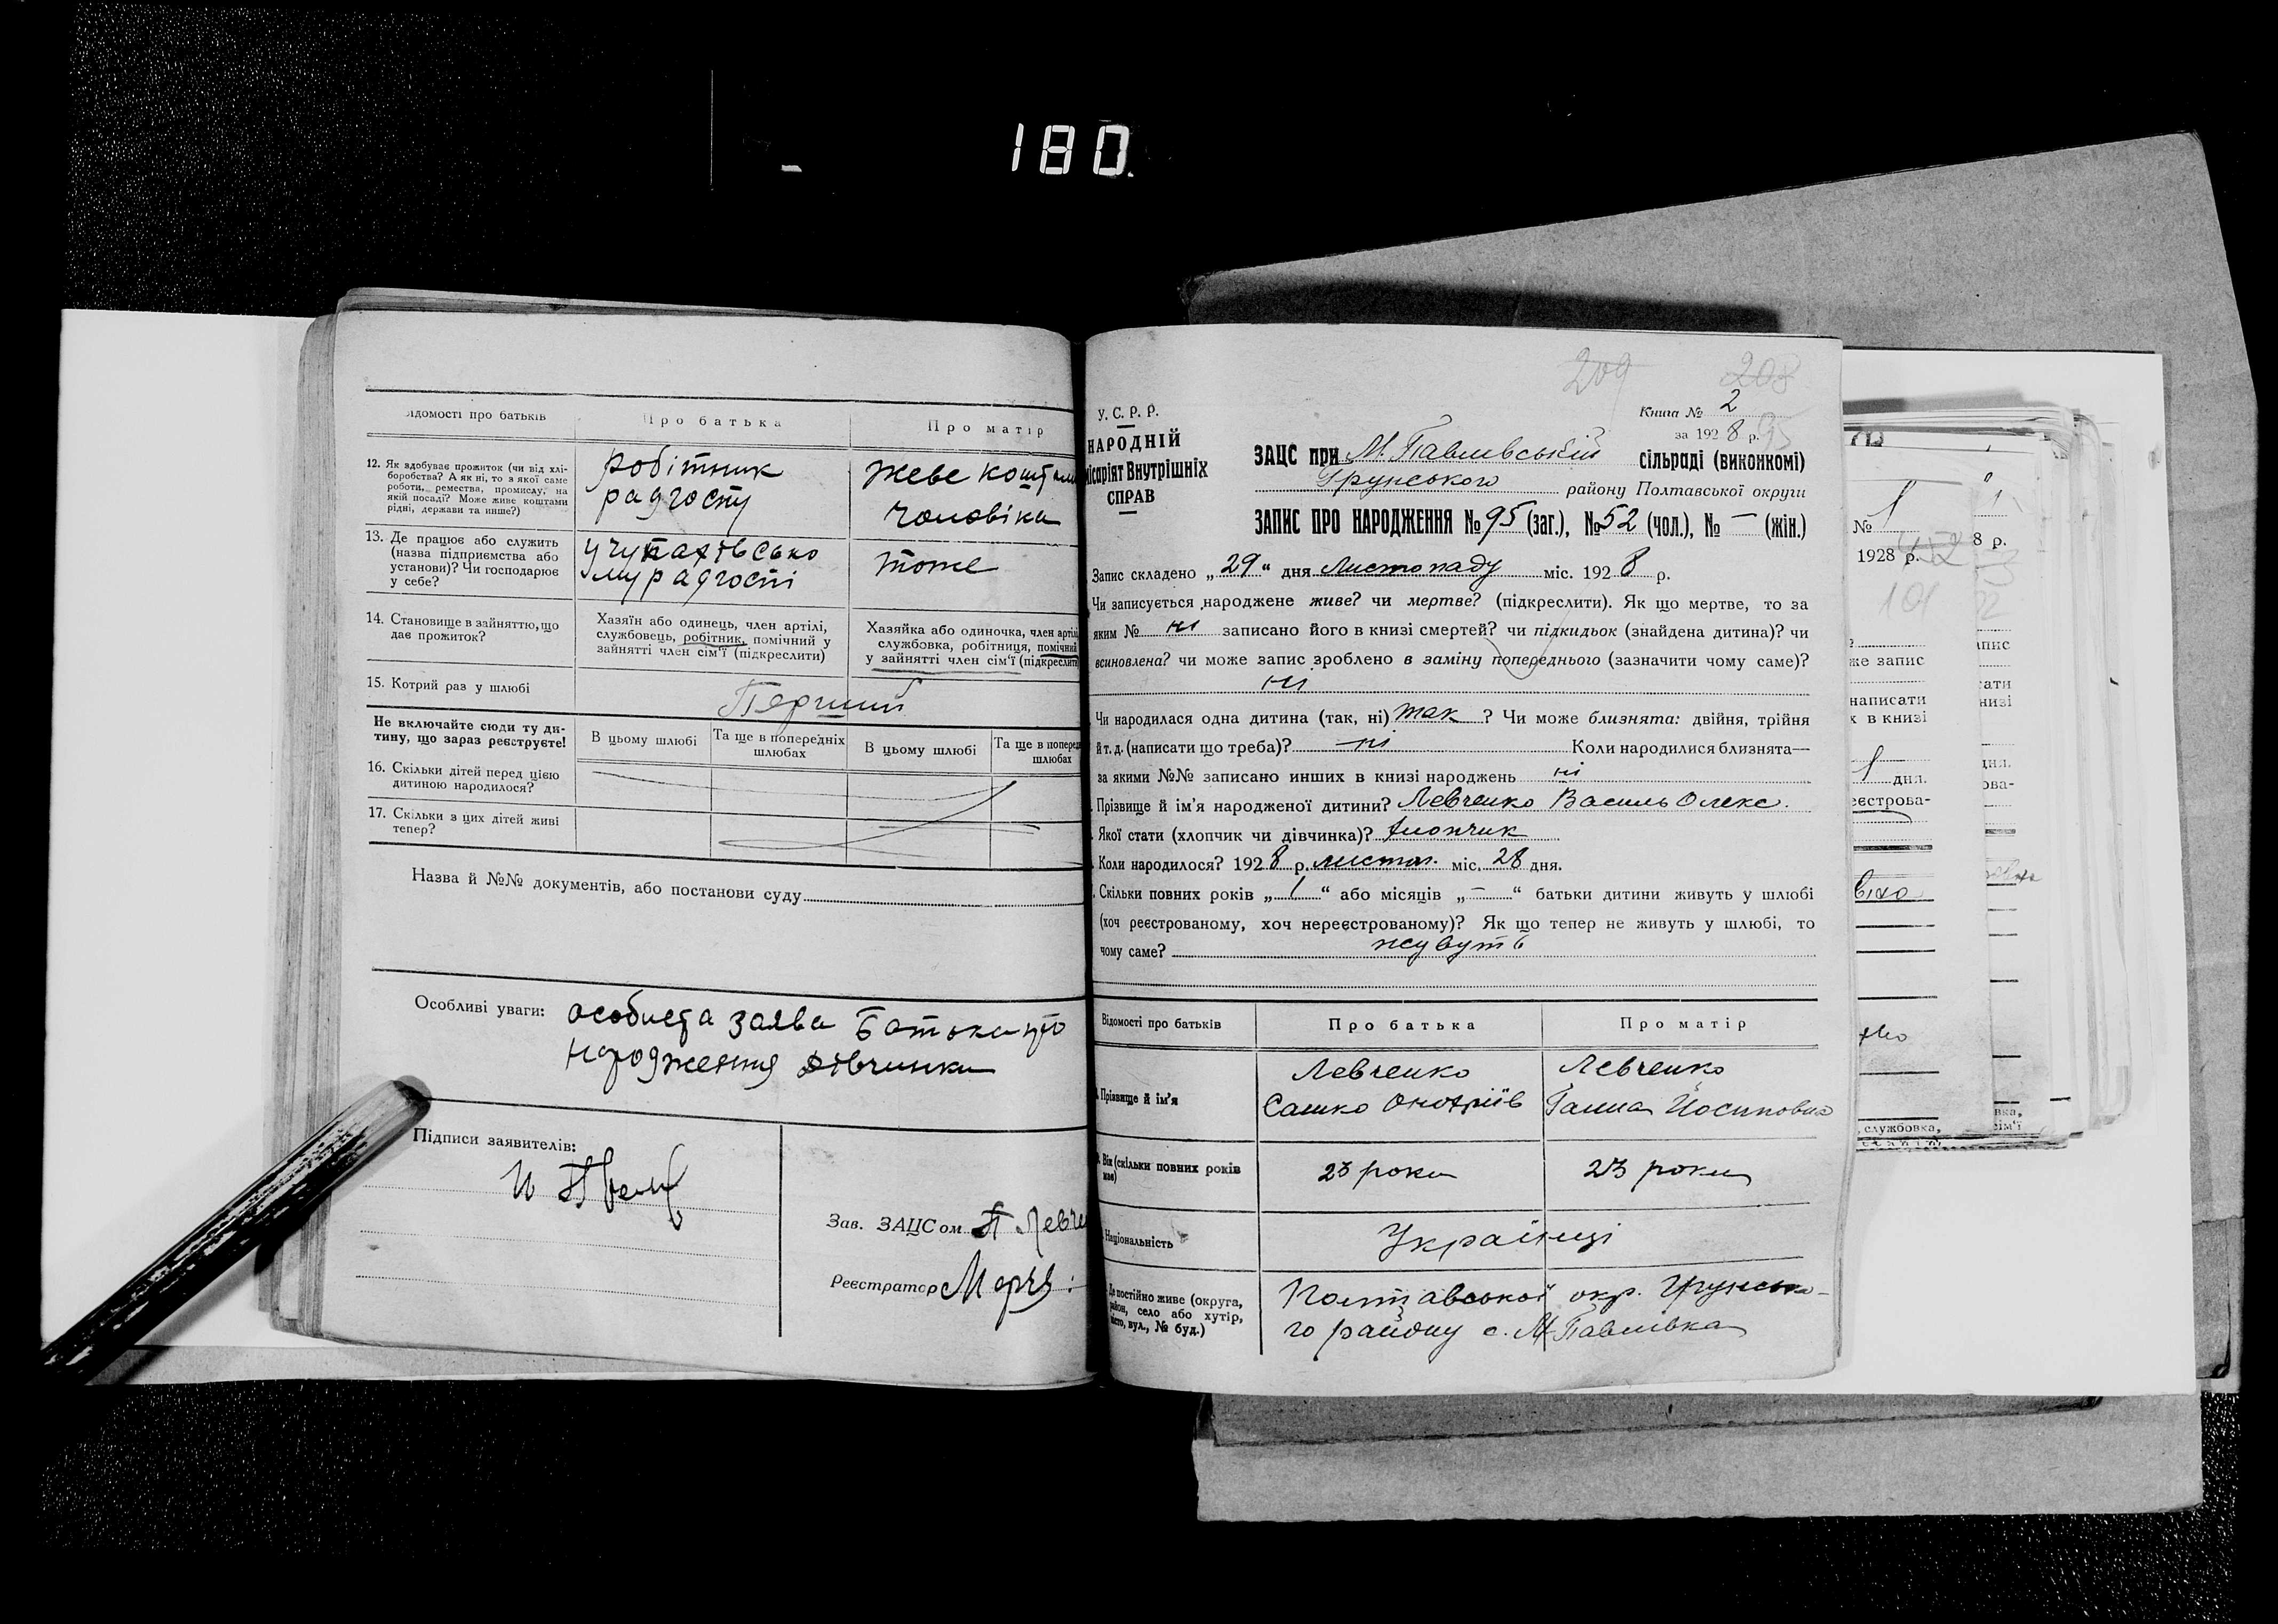 180.
Відомості про батьків
Про батька
Про матір
12. Як здобуває прожиток (чи від хлі-
боробства? А як ні, то з якої саме
роботи, ремества, промислу, на
якій посаді? Може живе коштами
рідні, держави та инше?)
робітник
радгоспу
живе коштами
чоловіка
13. Де працює або служить
(назва підприємства або
установи)? Чи господарює
у себе?
у Чупахівсько
му радгоспі
тоже
14. Становище в зайняттю, що
дає прожиток?
Хазяїн або одинець, член артілі,
службовець, робітник, помічний у
зайнятті член сім'ї (підкреслити)
Хазяйка або одиночка, член артілі,
службовка, робітниця, помічний
у зайнятті член сім'ї (підкреслити)
15. Котрий раз у шлюбі
Перший
Не включайте сюди ту ди-
тину, що зараз реєструєте!
В цьому шлюбі
Та ще в попередніх
шлюбах
В цьому шлюбі
Та ще в поперед
шлюбах
16. Скільки дітей перед цією
дитиною народилося?
17. Скільки з цих дітей живі
тепер?
Назва й №№ документів, або постанови суду
Особливі уваги: особиста заява батька про
народження дівчинки
Підписи заявителів:
Зав. ЗАЦСом П. Левче
Реєстратор
209 208
У. С. Р. Р.
НАРОДНІЙ
місаріят Внутрішніх
СПРАВ
Книга № 2
за 1928 р. 95
ЗАЦС при М. Павлівській сільраді (виконкомі)
Грунського району Полтавської округи
ЗАПИС ПРО НАРОДЖЕННЯ № 95 (заг.), № 52 (чол.), № — (жін.)
Запис складено „29“ дня Листопаду міс. 1928 р.
Чи записується народжене живе? чи мертве? (підкреслити). Як що мертве, то за
яким № ні записано його в книзі смертей? чи підкидьок (знайдена дитина)? чи
всиновлена? чи може запис зроблено в заміну попереднього (зазначити чому саме)?
ні
Чи народилася одна дитина (так, ні) так ? Чи може близнята: двійня, трійня
й т. д. (написати що треба)? ні Коли народилися близнята—
за якими №№ записано инших в книзі народжень ні
Прізвище й ім'я народженої дитини? Левченко Василь Олекс.
Якої стати (хлопчик чи дівчинка)? хлопчик
Коли народилося? 1928 р. листоп. міс. 28 дня.
Скільки повних років „1“ або місяців „—“ батьки дитини живуть у шлюбі
(хоч реєстрованому, хоч нереєстрованому)? Як що тепер не живуть у шлюбі, то
чому саме? живуть
Відомості про батьків
Про батька
Про матір
Прізвище й ім'я
Левченко
Сашко
Левченко
Ганна Йосиповна
Вік (скільки повних років
має)
23 роки
23 роки
Національність
Українці
Де постійно живе (округа,
район, село або хутір,
місто, вул., № буд.)
Полтавської окр. Грунсько-
го району с. М Павлівка
№ 1
1928 р.
8 р.
101
же запис
написати
х в книзі
дня.
еєстрова-
службовка,